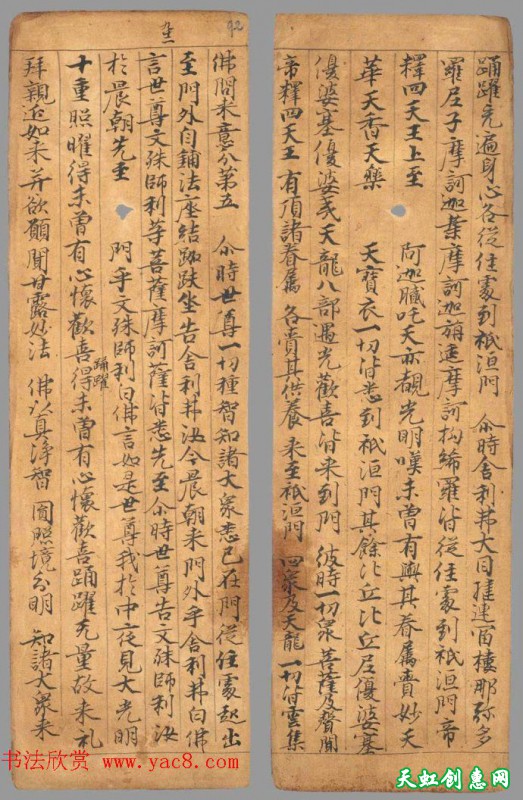 踊躍充遍身心各從住處到祇洹門 尒時舍利弗大目揵連富樓那弥多
羅尼子摩訶迦葉摩訶迦旃延摩訶拘絺羅皆從住處到祇洹門帝
釋四天王上至 阿迦膩吒天亦覩光明嘆未曾有與其眷属賫妙天
華天香天樂 天寶衣一切皆悉到祇洹門其餘比丘比丘尼優婆塞
優婆塞優婆夷天龍八部遇光歡喜皆来到門 彼時一切衆 菩薩及聲聞
帝釋四天王 有頂諸眷属 各賫其供養 来至祇洹門 四衆及天龍 一切皆雲集
92
佛問来意分第五 尒時世尊一切種智知諸大衆悉已在門從住處起出
至門外自鋪法座結跏趺坐告舍利弗汝今晨朝来門外乎舍利弗白佛
言世尊文殊師利等菩薩摩訶薩皆悉先至尒時世尊告文殊師利汝
於晨朝先至 門乎文殊師利白佛言如是世尊我於中夜見大光明
十重照曜得未曾有心懷歡喜得未曾有心懷歡喜踊躍无量故来礼
踊躍
拜親近如来并欲願聞甘露妙法 佛以真淨智 圓照境分明 知諸大衆来
书法欣赏
www.yac8.com
天虹创惠网